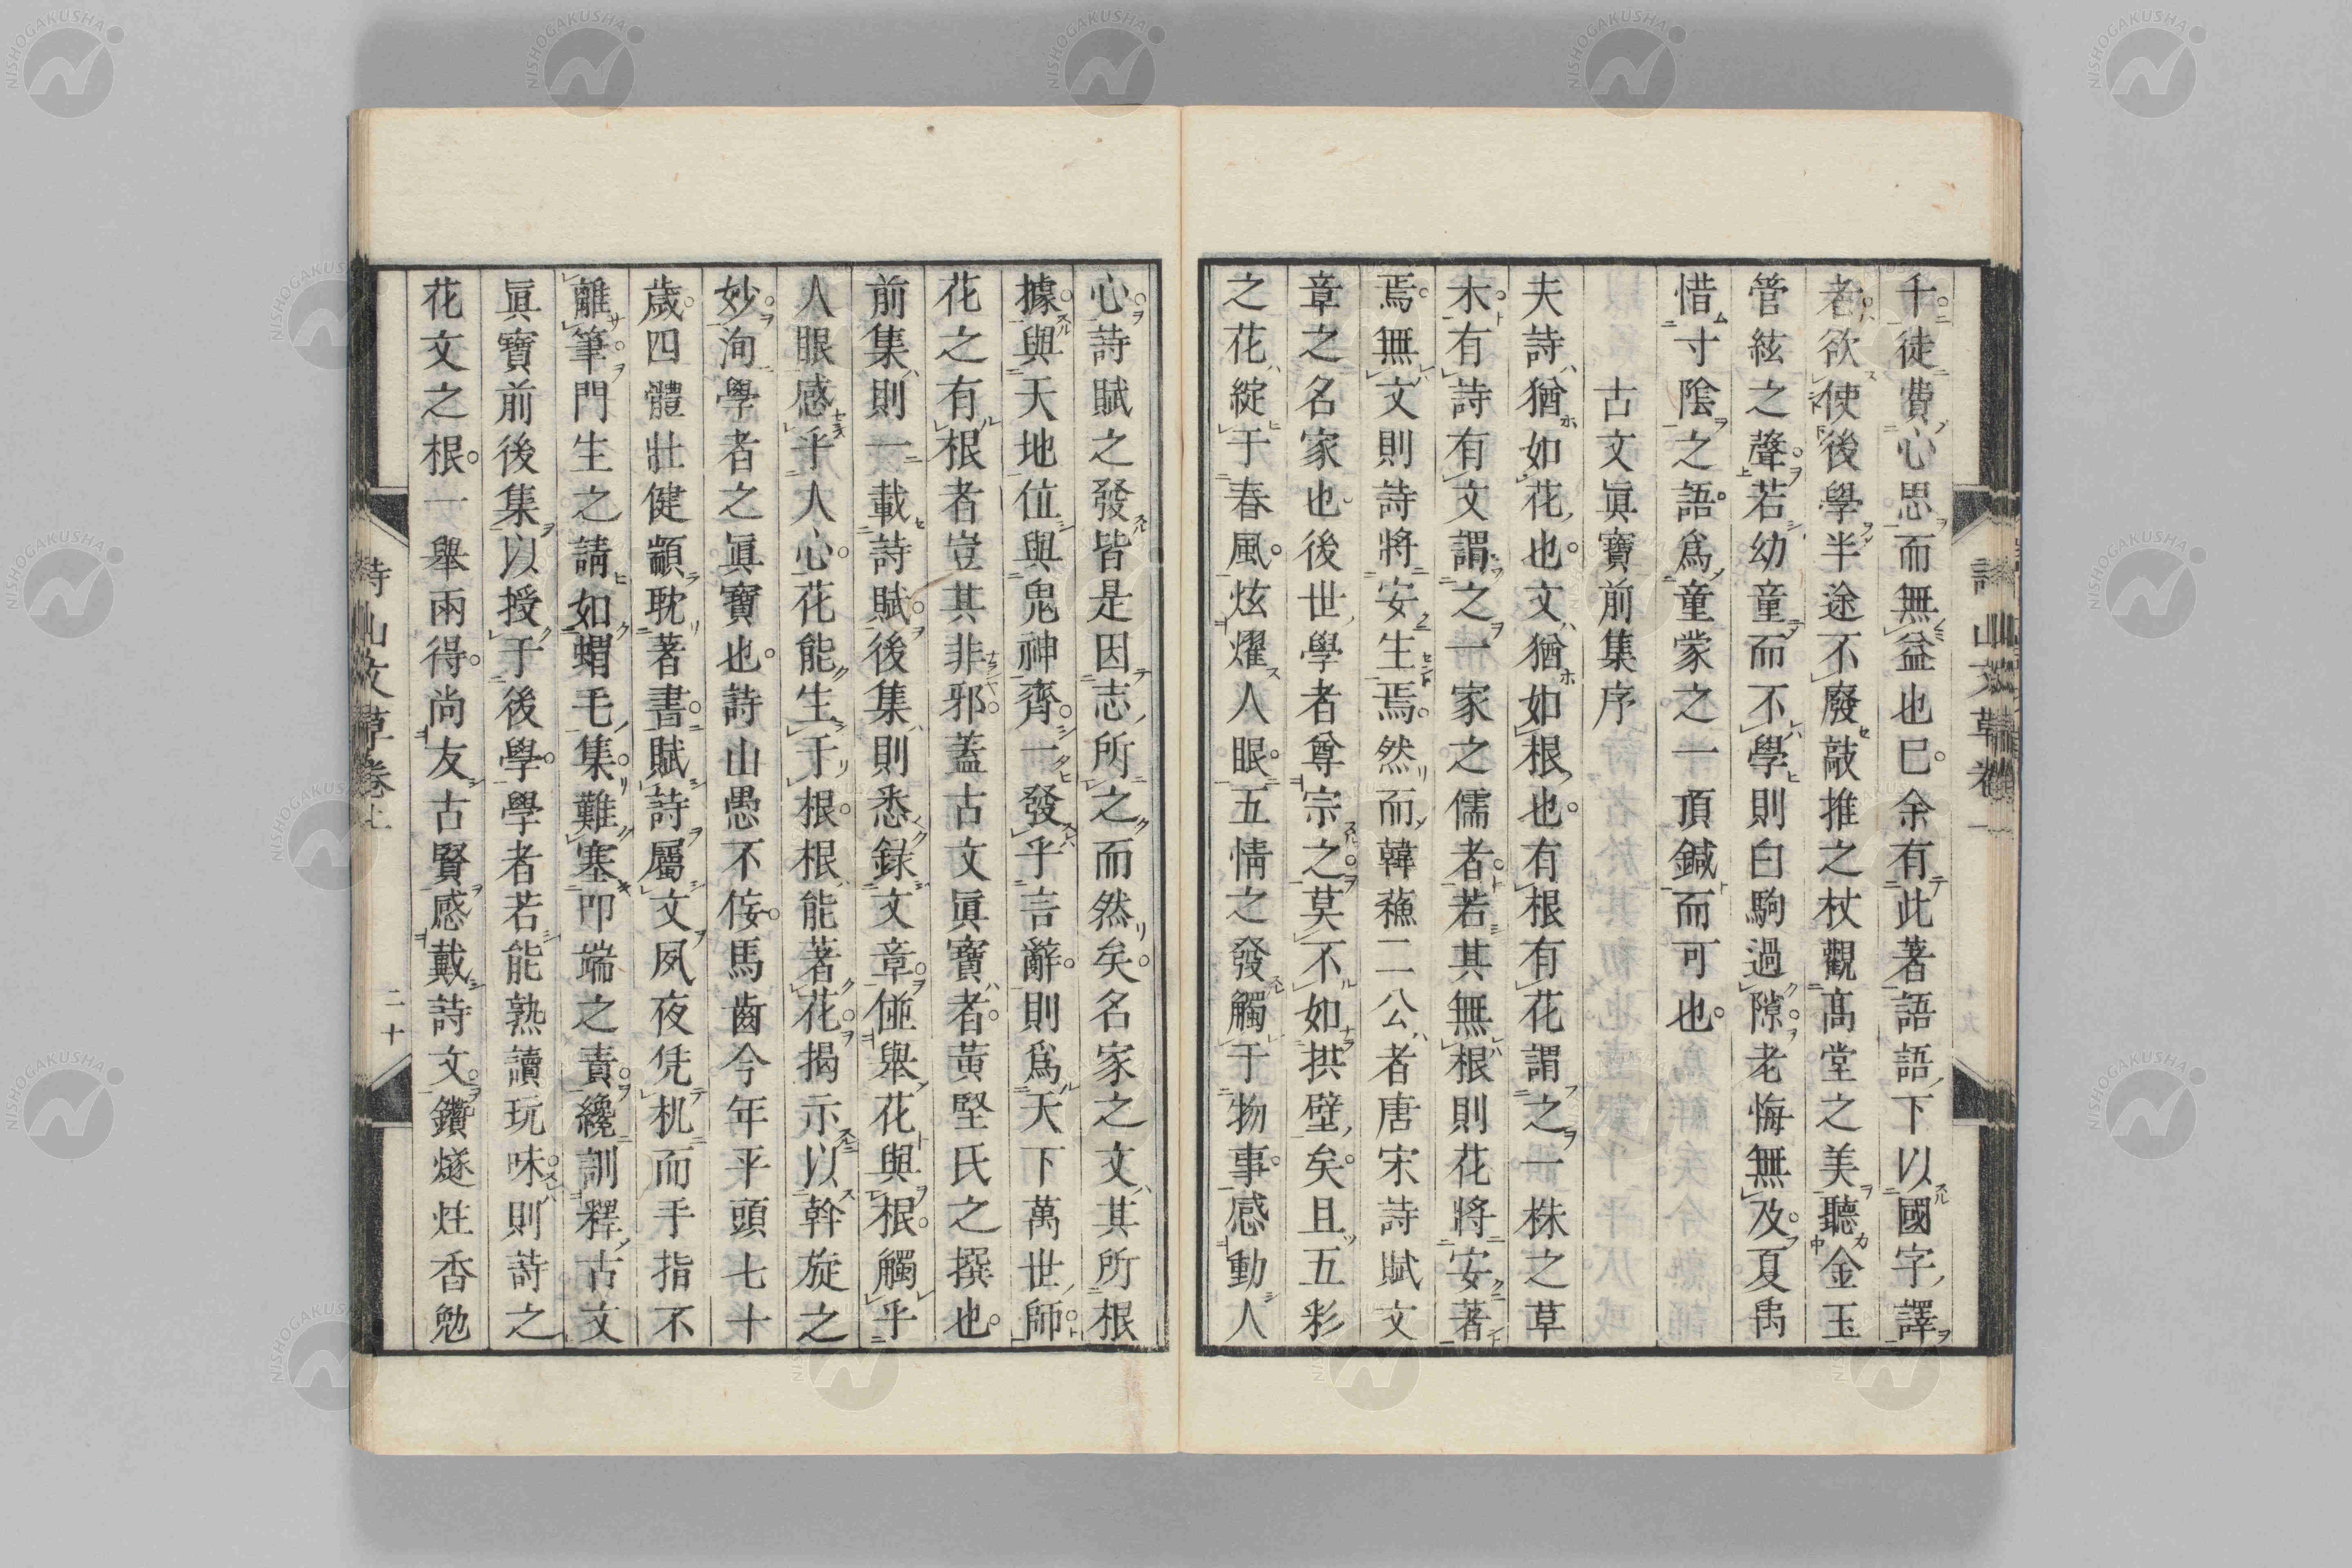 千徒費心思而無益也已余有此著語語下以國字譯
者欲使後學半途不廢敲推之杖觀髙堂之美聽金玉
管絃之聲若幼童而不學則白駒過隙老悔無及夏禹
惜寸陰之語爲童蒙之一頂鍼而可也
古文眞寶前集序
夫詩猶如花也文猶如根也有根有花謂之一株之草
木有詩有文謂之一家之儒者若其無根則花將安著
焉無文則詩將安生焉然而韓蘓二公者唐宋詩賦文
章之名家也後世學者尊宗之莫不如拱壁矣且五彩
之花綻于春風炫燿人眼五情之發觸于物事感動人
心詩賦之發皆是因志所之而然矣名家之文其所根
據與天地位與鬼神齊一發乎言辭則爲天下萬世師
花之有根者豈其非邪蓋古文眞寶者黃堅氏之撰也
前集則一載詩賦後集則悉録文章傕舉花與根觸乎
人眼感乎人心花能生于根根能著花揭示以斡旋之
妙洵學者之眞寶也詩山愚不侫馬齒今年平頭七十
歲四體壯健顓耽著書賦詩屬文夙夜凭机而手指不
離筆門生之請如蝟毛集難塞叩端之責纔訓釋古文
眞寶前後集以授于後學學者若能熟讀玩味則詩之
花文之根一舉兩得尚友古賢感戴詩文鑽燧炷香勉
詩山文草卷上
二十